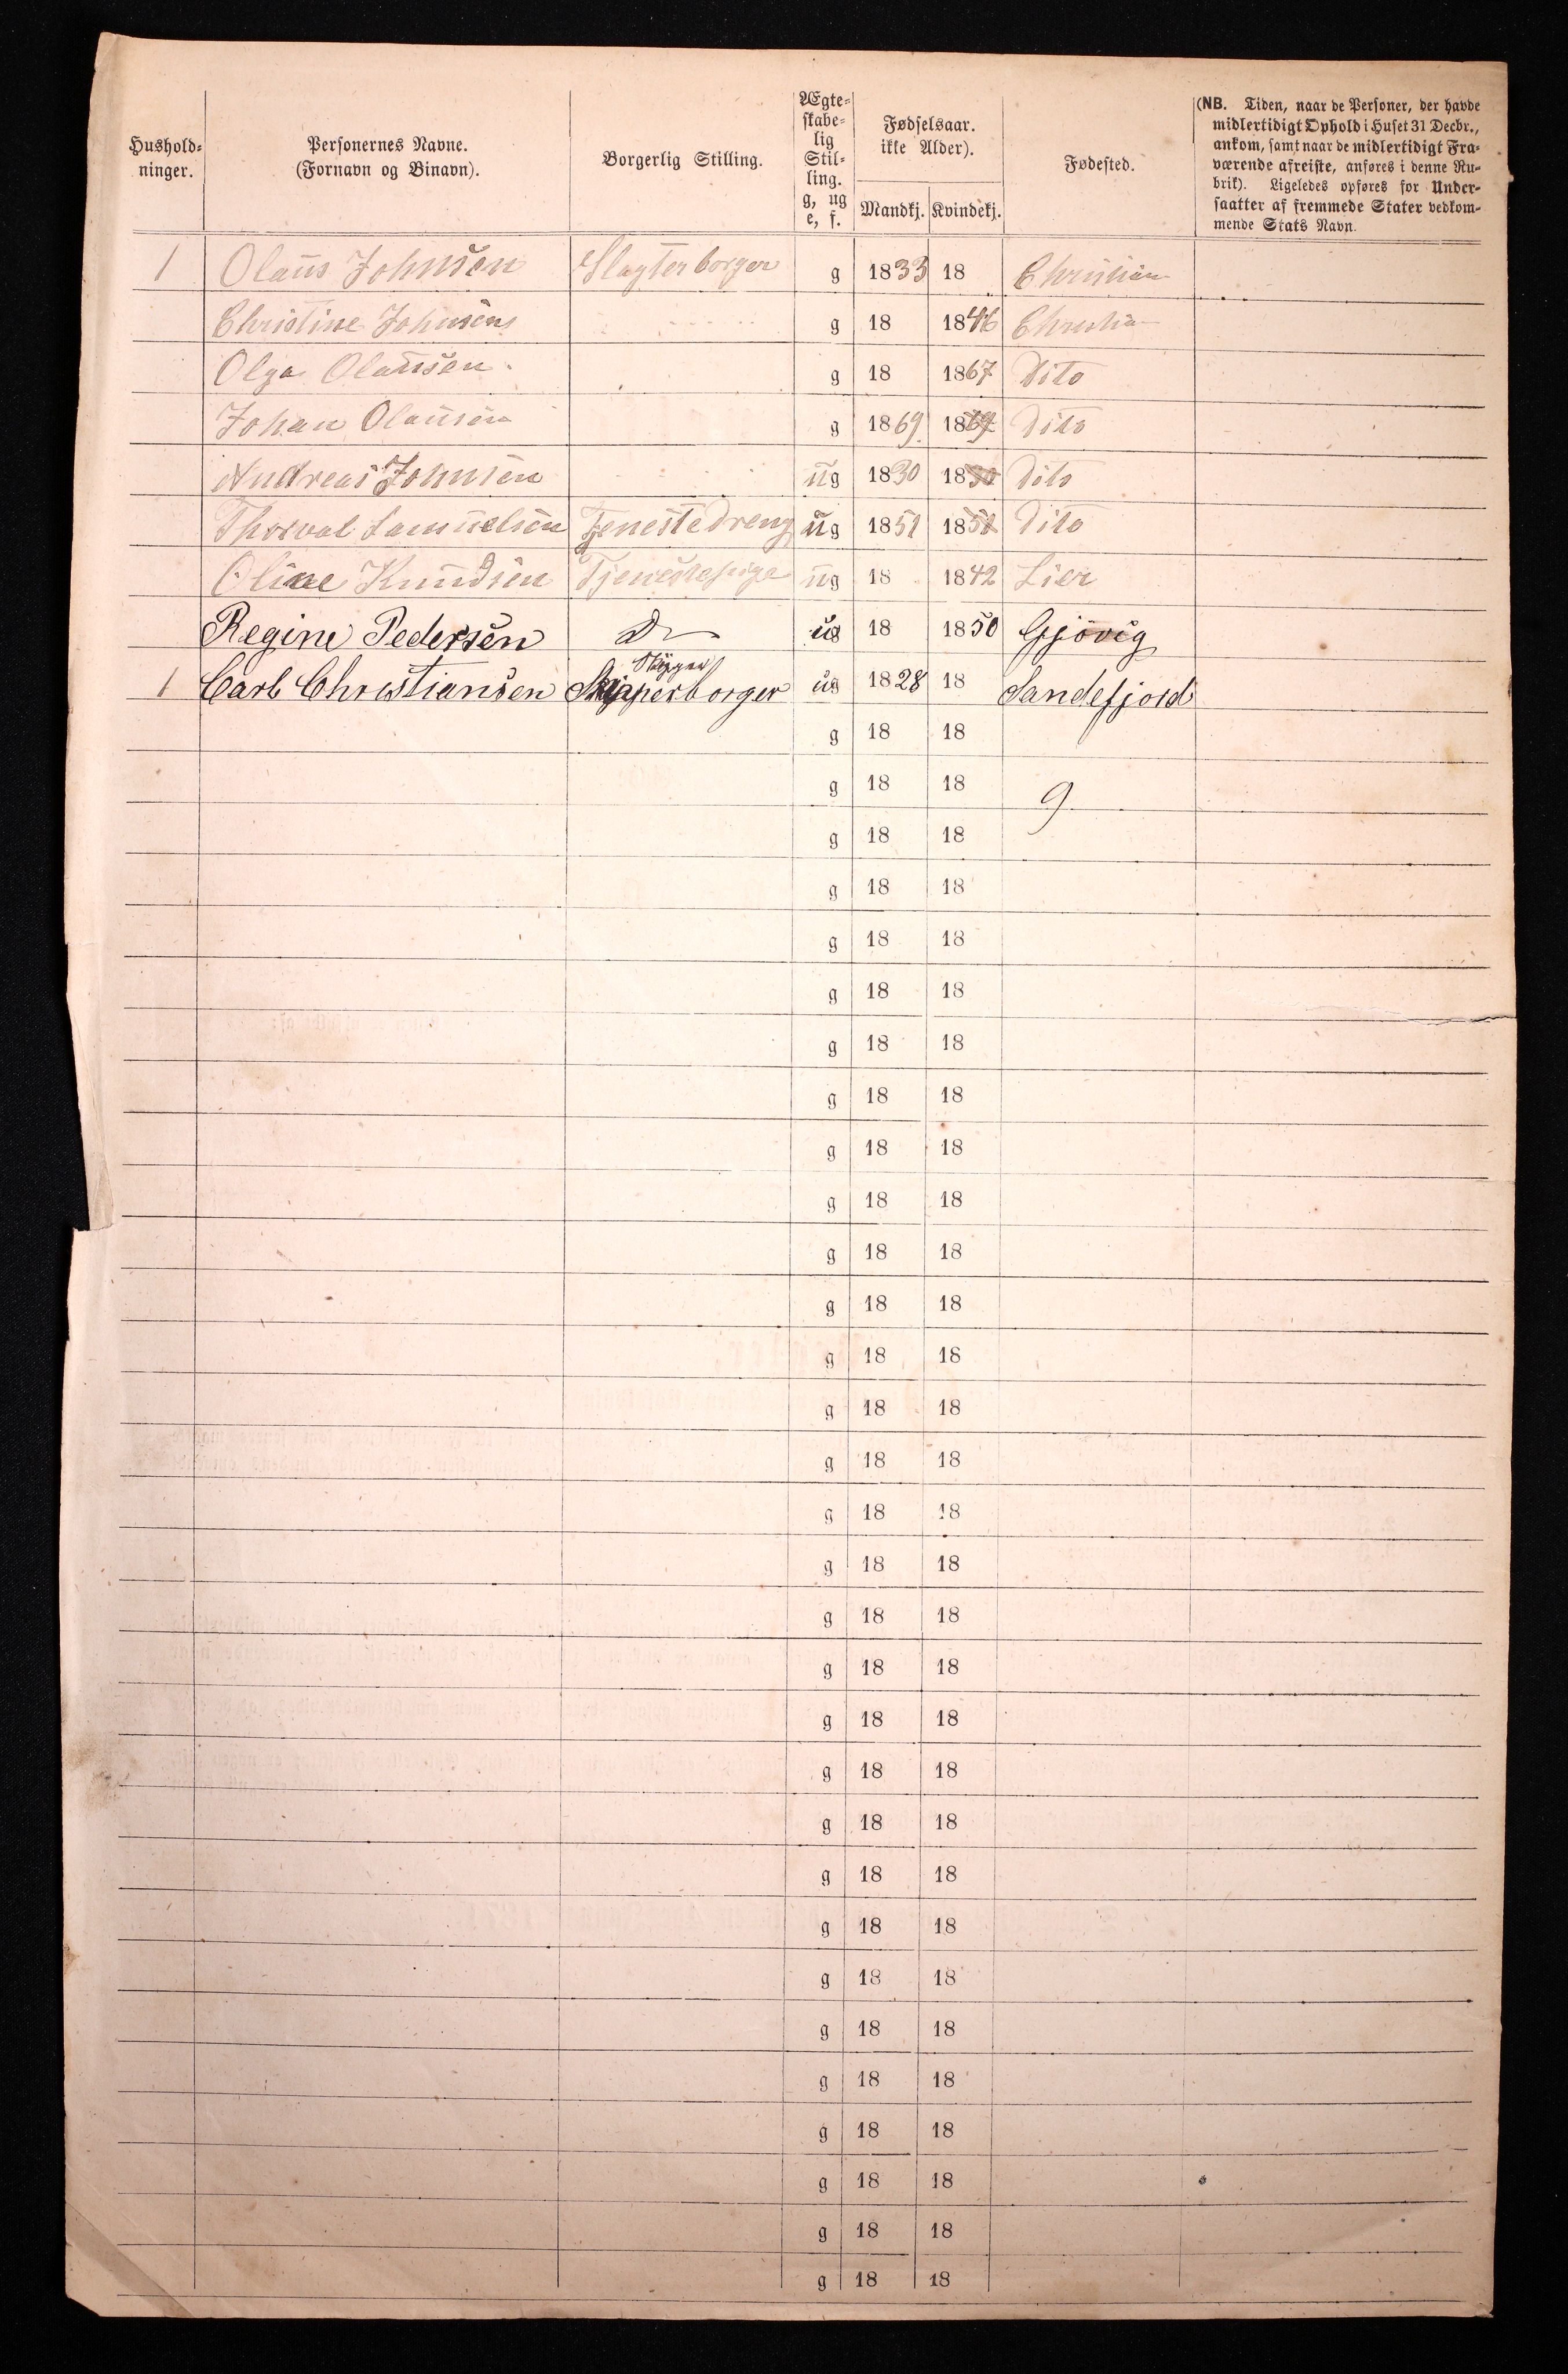 Hushold-
ninger.
Personernes Navne.
(Fornavn og Binavn).
Borgerlig Stilling.
Ægte-
skabe-
lig
Stil-
ling.
g, ug
e, f.
Fødselsaar.
ikke Alder).
Mandkj. Kvindekj.
Fødested.
(NB. Tiden, naar de Personer, der havde
midlertidigt Ophold i Huset 31 Decbr.,
ankom, samt naar de midlertidigt Fra-
værende afreiste, anføres i denne Ru-
brik). Ligeledes opføres for Under-
saatter af fremmede Stater vedkom-
mende Stats Navn.
1 Olaus Johnsen Slagterborger g 1833 18 Christian
Christine Johnsens g 18 1846 Christia
Olga Olaussen. g 18 1867 Dito
Johan Olausen g 1869 1869 Dito
Andreas Johnsen ug 1830 1830 Dito
Thorval Samuelsen Tjenestedreng ug 1851 1851 Dito
Oline Knudsen Tjenestepige ug 18 1842 Lier
Regine Pedersen Do ug 18 1850 Gjövig
1 Carl Christiansen Skipperborger ug 1828 18 Sandefjord
g 18 18
g 18 18 9
g 18 18
g 18 18
g 18 18
g 18 18
g 18 18
g 18 18
g 18 18
g 18 18
g 18 18
g 18 18
g 18 18
g 18 18
g 18 18
g 18 18
g 18 18
g 18 18
g 18 18
g 18 18
g 18 18
g 18 18
g 18 18
g 18 18
g 18 18
g 18 18
g 18 18
g 18 18
g 18 18
g 18 18
g 18 18